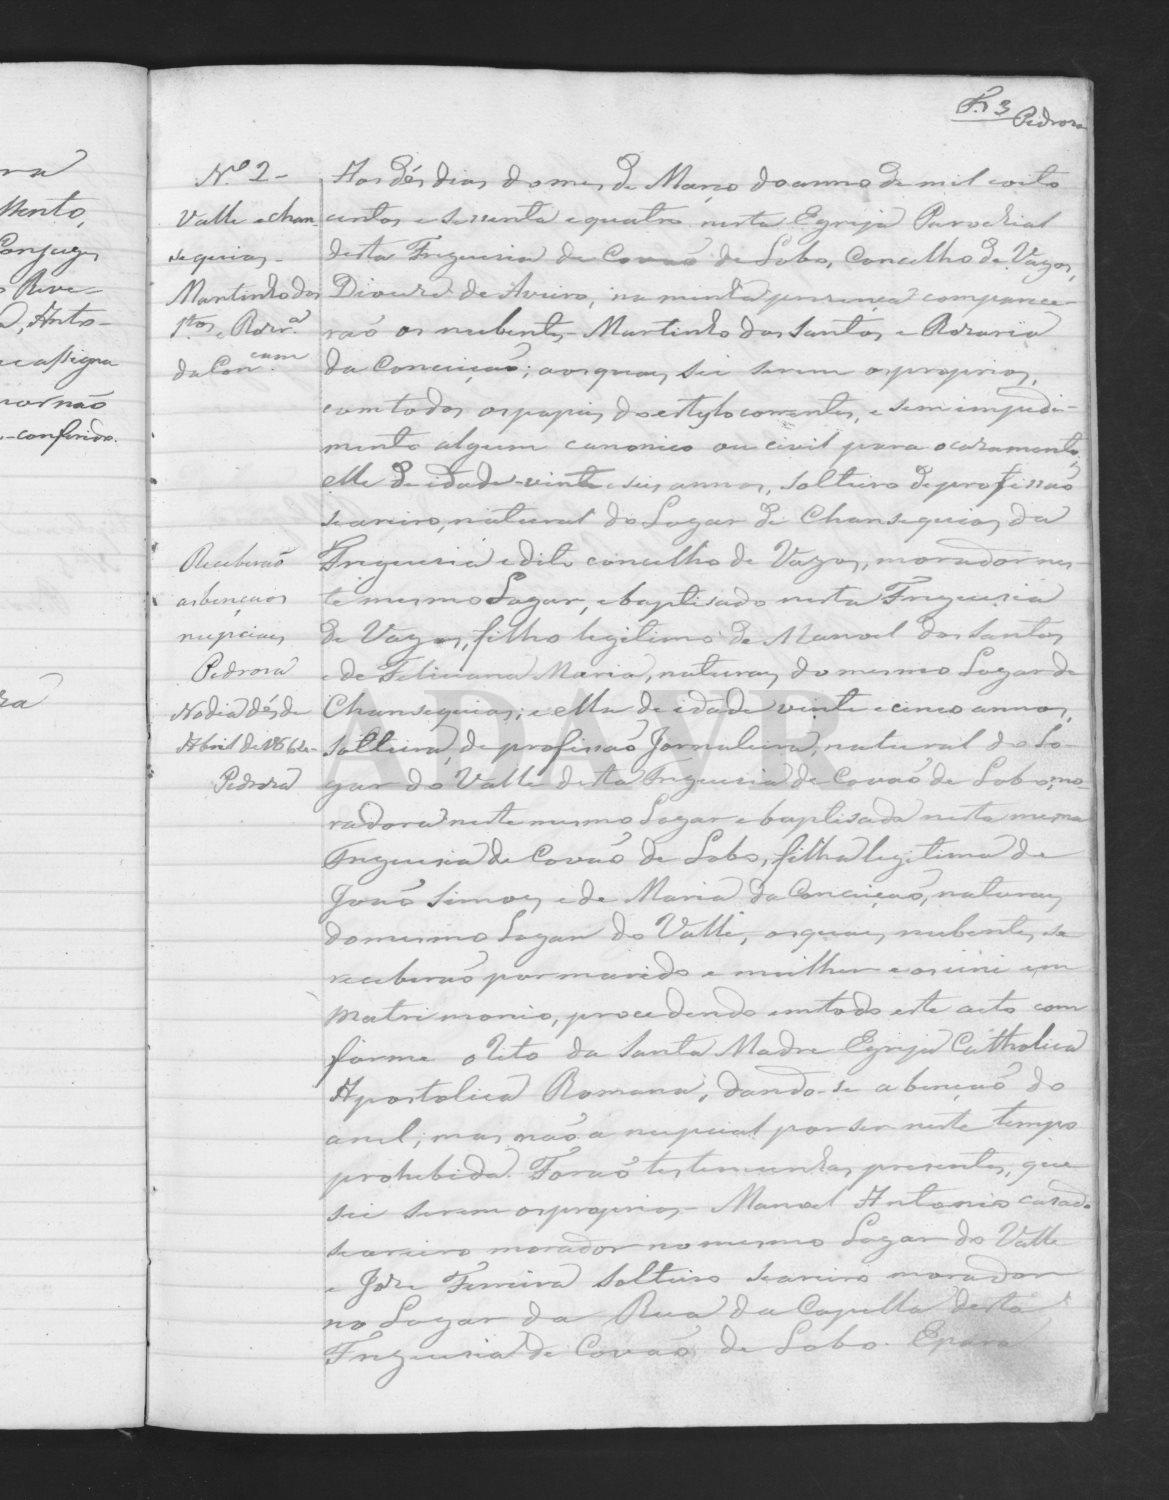 Fl. 3 Pedrosa
Nº 2 -
Valle e Chan-
sequias -
Martinho dos
Stos e Rozrª
da Concam
Receberaõ
as bençaos
nupciaes
Pedrosa
No dia dés de
Abril de 1864 -
Pedrosa
Aos dés dias do mes de Março do anno de mil oito
centos e sessenta e quatro nesta Egreja Parochial
desta Freguesia de Covaõ de Lobo, Concelho de Vagos,
Diocese de Aveiro, na minha presença comparece-
raõ os nubentes - Martinho dos Santos e Rozaria
da Conceiçaõ; aos quaes sei serem os proprios,
com todos os papeis do estylo correntes, e sem impedi-
mento algum canonico ou civil para o casamento,
elle de idade vinte e seis annos, solteiro de profissaõ
seareiro, natural do Logar de Chansequias da
Freguesia e dito concelho de Vagos, morador nes-
te mesmo Logar, e baptisado nesta Freguesia
de Vagos, filho legitimo de Manoel dos Santos
e de Feliciana Maria, naturaes do mesmo Logar de
Chansequias; e ella de idade vinte e cinco annos,
solteira, de profissaõ Jornaleira, natural do Lo-
gar do Valle desta Freguesia de Covaõ de Lobo, mo-
radora neste mesmo Logar e baptisada nesta mesma
Freguesia de Covaõ de Lobo, filha legitima de
Joaõ Simoes e de Maria da Conceiçaõ, naturaes
do mesmo Logar do Valle, os quaes nubentes se
receberaõ por marido e mulher e os uni em
Matrimonio, procedendo em todo este acto com
forme o Rito da Santa Madre Egreja Catholica
Apostolica Romana, dando-se a bençaõ do
anel; mas naõ a nupcial por ser neste tempo
prohibida. Foraõ testemunhas presentes, que
sei serem os proprios - Manoel Antonio casado
seareiro morador no mesmo Logar do Valle
e Joze Ferreira solteiro seareiro morador
no Logar da Rua da Capella desta
Freguesia de Covaõ de Lobo. E para
ADAVR
ra
Mento,
Conjuges
Reve-
Anto-
e assigna
por naõ
- conferido.